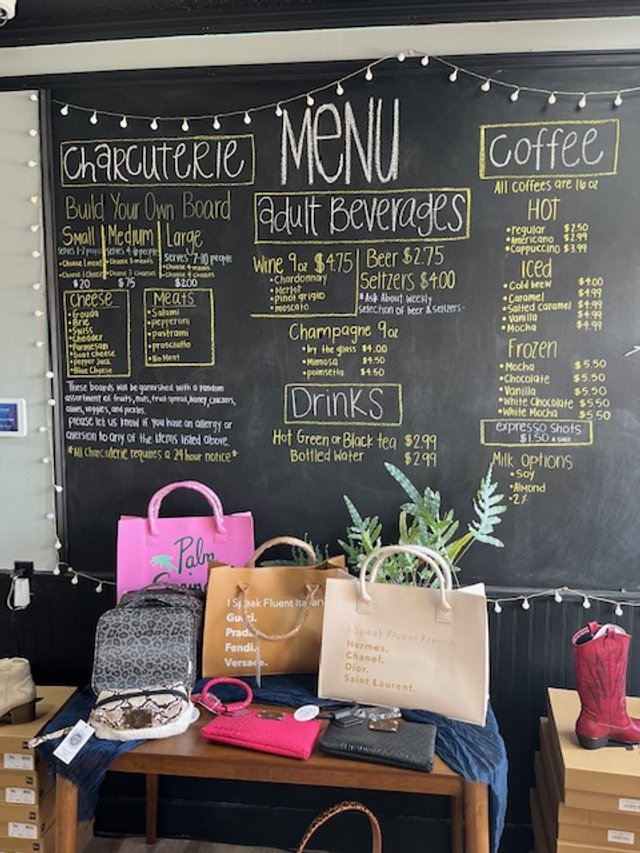 MENU
Charcuterie
Build Your Own Board
Small Medium Large
serves 1-2 people serves 4-6 people serves 7-10 people
$20 $75 $200
Cheese
• Gouda
• Brie
• Swiss
• Chedder
• Parmesan
• Goat Cheese
• Pepper Jack
• Blue Cheese
Meats
• Salami
• pepperoni
• pastrami
• prosciutto
• No Meat
These boards will be garnished with a random
assortment of fruits, nuts, fruit spread, honey, crackers,
olives, veggies, and pickles.
please let us know if you have an allergy or
aversion to any of the items listed above.
*All Charcuterie requires a 24 hour notice*
adult Beverages
Wine 9oz $4.75
• Chardonnay
• Merlot
• Pinot grigio
• moscato
Beer $2.75
Seltzers $4.00
*Ask About weekly
selection of beer & seltzers-
Champagne 9oz
• by the glass $4.00
• Mimosa $4.50
• poinsetta $4.50
Drinks
Hot Green or Black tea $2.99
Bottled Water $2.99
Coffee
All coffees are 16 oz
HOT
• regular $2.50
• Americano $2.99
• Cappuccino $3.99
Iced
• Cold brew $4.00
• Caramel $4.99
• Salted caramel $4.99
• Vanilla $4.99
• Mocha $4.99
Frozen
• Mocha $5.50
• Chocolate $5.50
• Vanilla $5.50
• White Chocolate $5.50
• White Mocha $5.50
expresso shots
$1.50 a shot
Milk Options
• Soy
• Almond
• 2%
Palm
I Speak Fluent Italian
Gucci.
Prada.
Fendi.
Versace.
I Speak Fluent French.
Hermes.
Chanel.
Dior.
Saint Laurent.